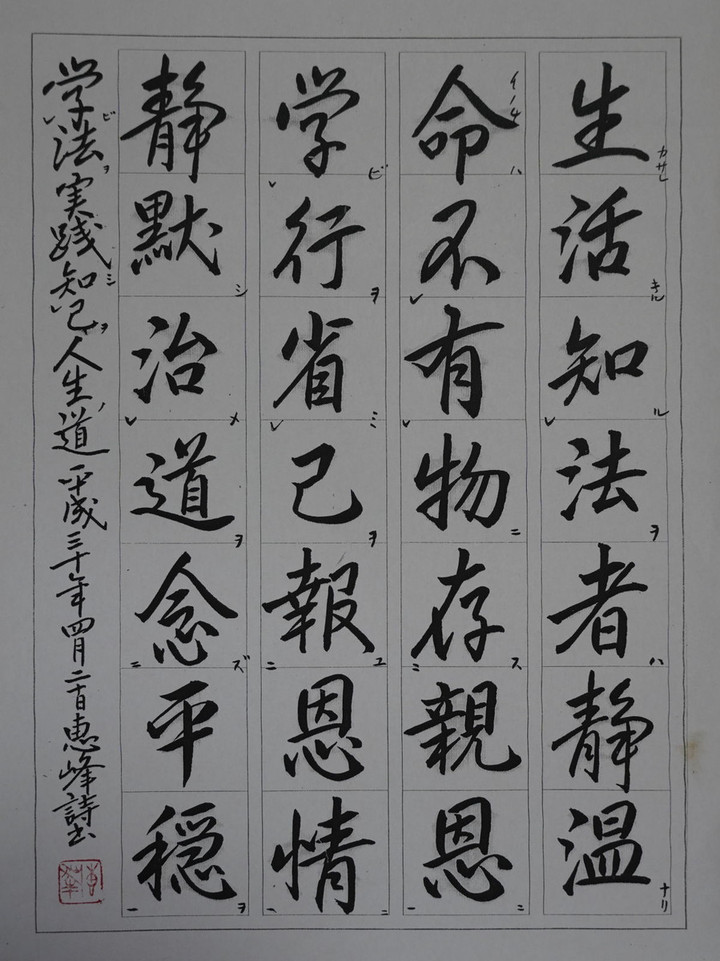 生活知法者静温
命不有物存親恩
学行省己報恩情
静默治道念平穏
学ビ法ヲ実践シ知己ヲ人生ノ道 平成三十年四月二十日恵峰詩書